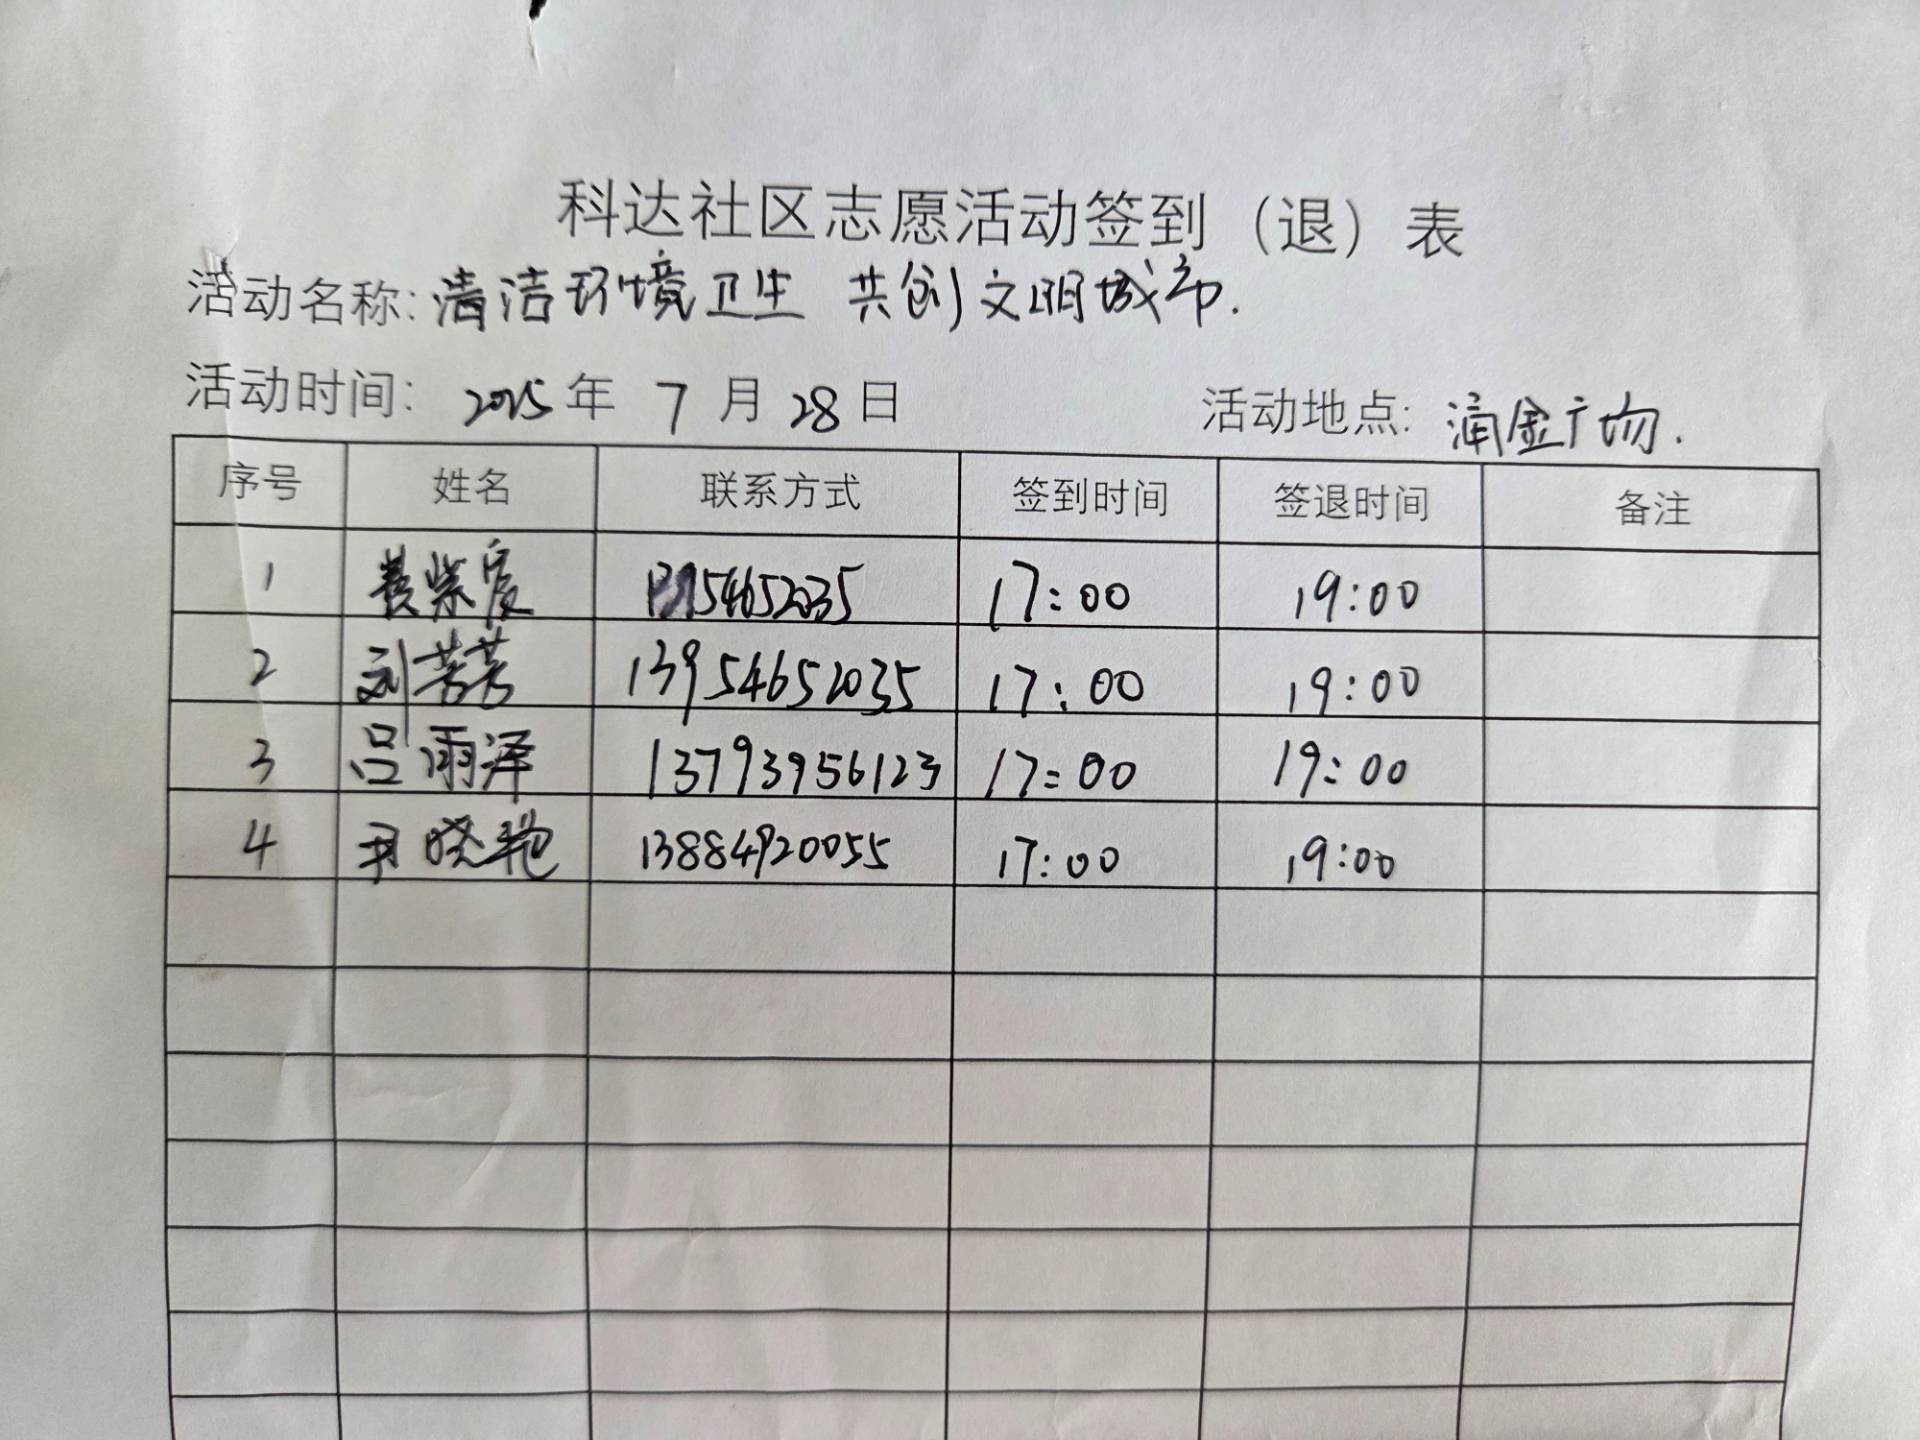 科达社区志愿活动签到（退）表
活动名称: 清洁环境卫生 共创文明城市.
活动时间: 2025年 7月28日 活动地点: 润金广场.
序号 姓名 联系方式 签到时间 签退时间 备注
1 17:00 19:00
2 刘芳芳 13954652035 17:00 19:00
3 吕雨泽 13793956123 17:00 19:00
4 尹晓艳 13884920055 17:00 19:00